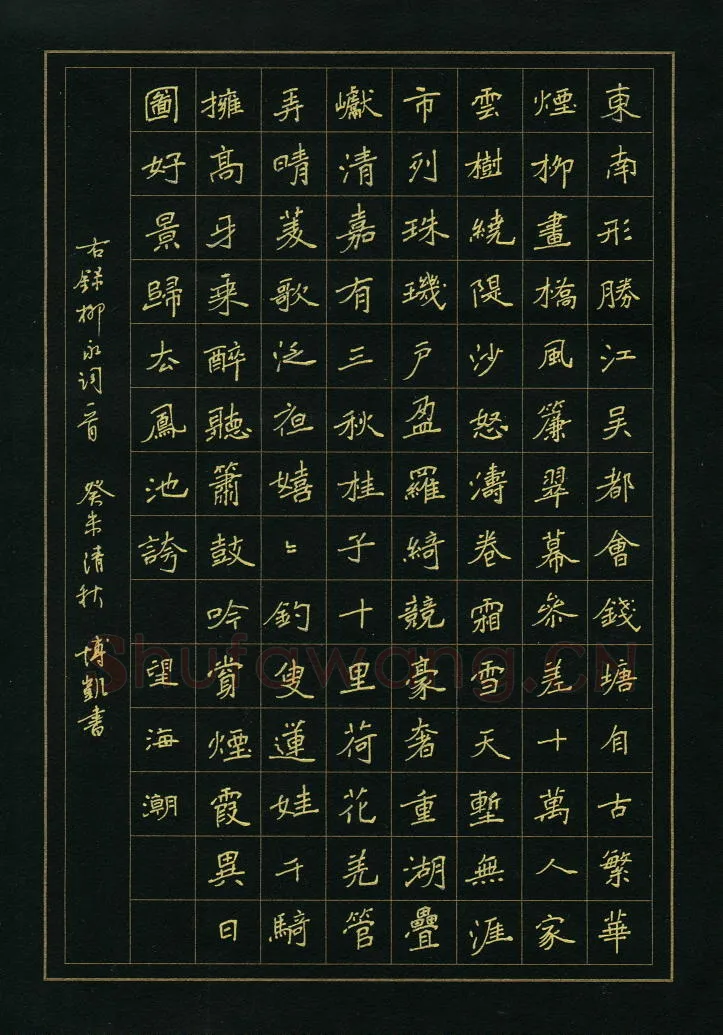 東南形勝江吴都會錢塘自古繁華
煙柳畫橋風簾翠幕参差十萬人家
雲樹繞隄沙怒濤卷霜雪天塹無涯
市列珠璣户盈羅綺競豪奢重湖疊
巘清嘉有三秋桂子十里荷花羌管
弄晴菱歌泛夜嬉〻釣叟蓮娃千騎
擁高牙乘醉聽簫鼓吟賞煙霞異日
圖好景歸去鳳池誇 望海潮
右錄柳永词一首 癸未清秋 博凱書
Shufawang.CN